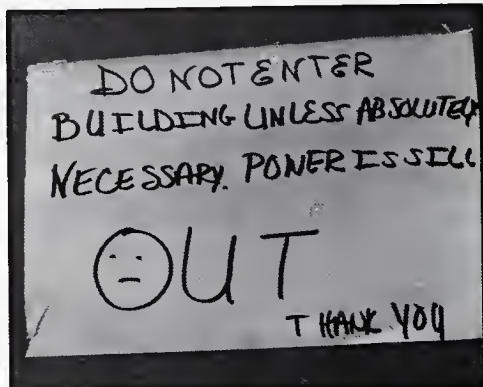 DO NOT ENTER
BUILDING UNLESS ABSOLUTELY
NECESSARY. PONER IS SILL
OUT
THANK YOU